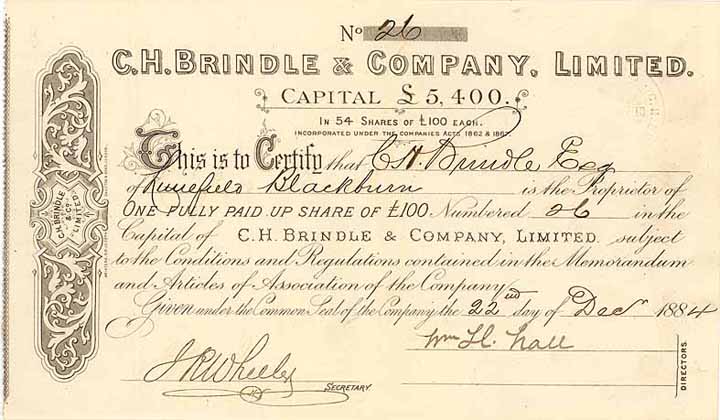 No 26
C.H. BRINDLE & COMPANY, LIMITED.
CAPITAL £5,400.
IN 54 SHARES OF £100 EACH.
INCORPORATED UNDER THE COMPANIES ACTS 1862 & 1867.
This is to Certify that C H. Brindle Esq
of Blackburn is the Proprietor of
ONE FULLY PAID UP SHARE OF £100 Numbered 26 in the
Capital of C.H. BRINDLE & COMPANY, LIMITED. subject
to the Conditions and Regulations contained in the Memorandum
and Articles of Association of the Company
Given under the Common Seal of the Company the 22nd day of Decr 1884
Wm H. Nall
DIRECTORS.
SECRETARY.
C.H. BRINDLE
& CO.
LIMITED.